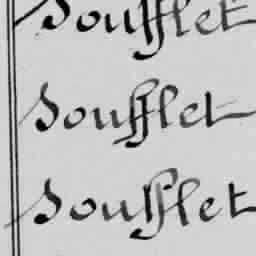 Soufflet
Soufflet
Soufflet